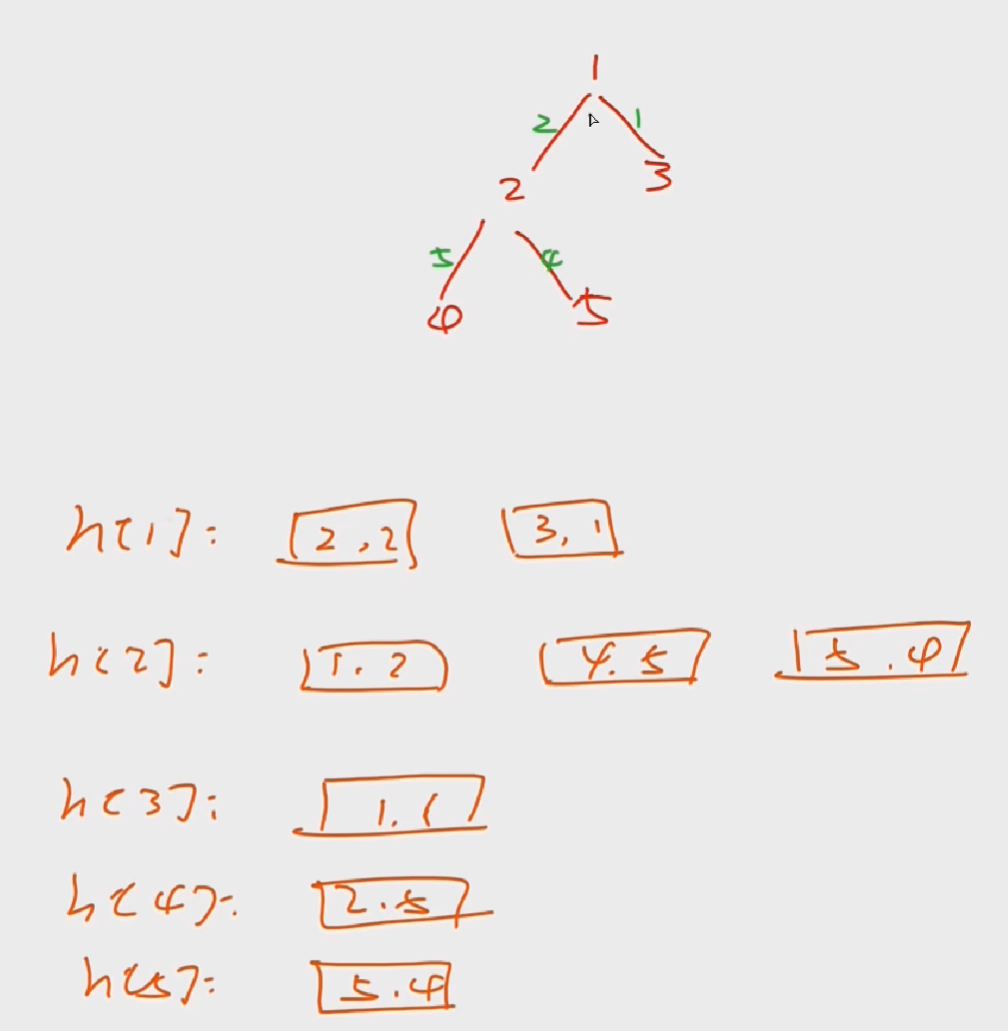 1
2 1
2 3
5 4
4 5
h[1]: 2,2 3,1
h[2]: 1.2 4.5 5.4
h[3]: 1.1
h[4]: 2.5
h[5]: 5.4